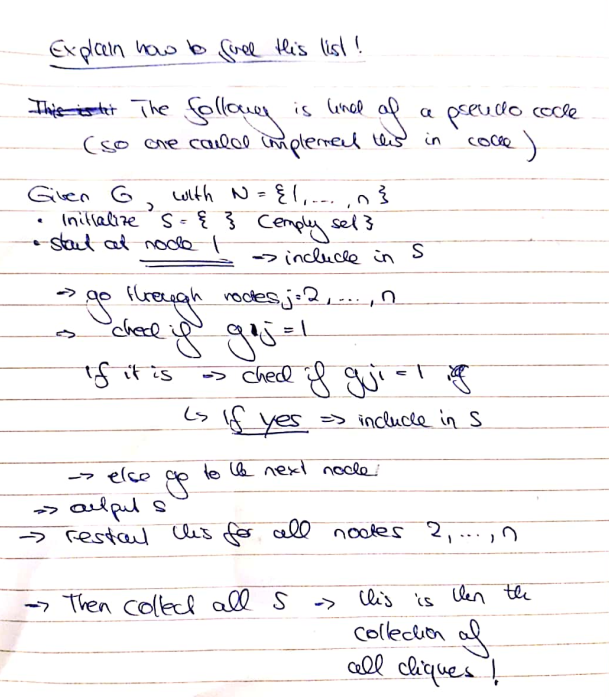 Explain how to find this list!
This is ht The following is kind of a pseudo code
(so one could implement this in code)
Given G, with N = {1,..., n}
• Initialize S = { } (empty set}
• start at node 1 -> include in S
-> go through nodes j=2, ..., n
=> check if g1j = 1
If it is -> check if gj1 = 1 if
↳ If yes => include in S
-> else go to the next node
=> output S
-> restart this for all nodes 2, ..., n
-> Then collect all S -> this is then the
collection of
all cliques!